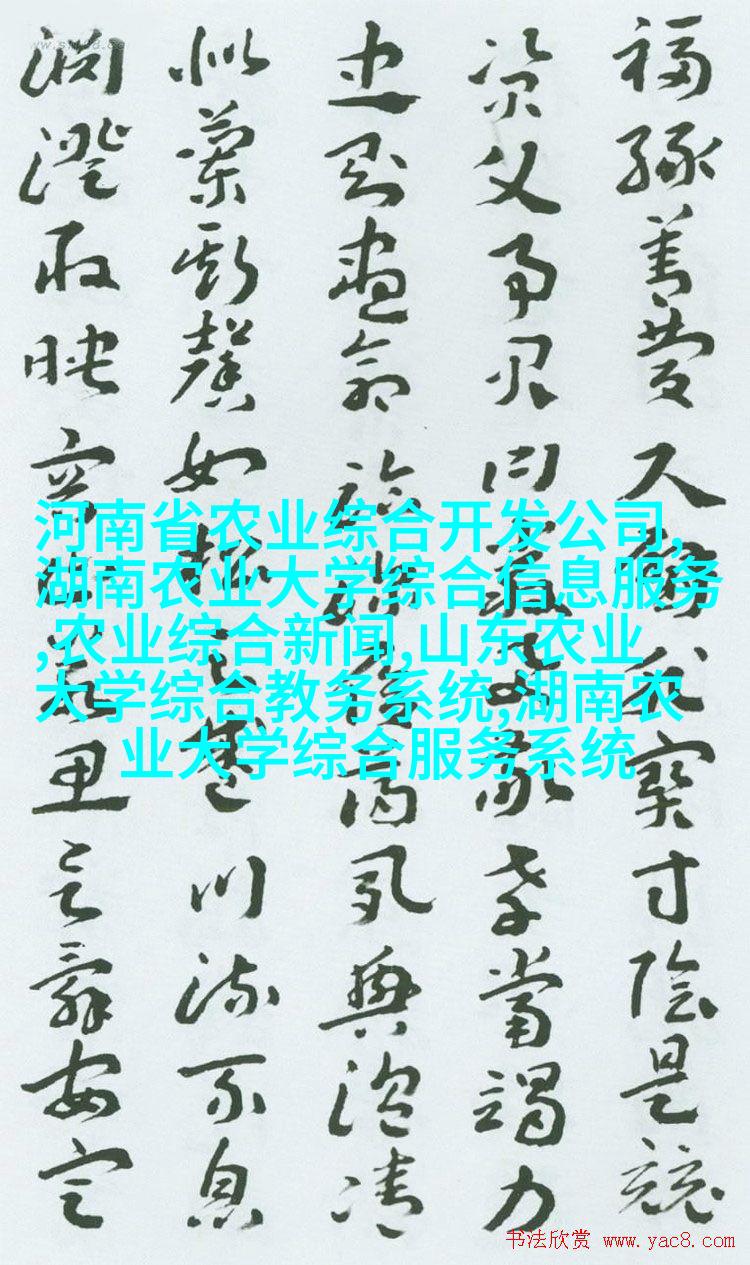 福緣善慶尺璧非寶寸陰是競
資父事君曰嚴與敬孝當竭力
忠則盡命臨深履薄夙興溫凊
似蘭斯馨如松之盛川流不息
淵澄取映容止若思言辭安定
河南省农业综合开发公司,
湖南农业大学综合信息服务
,农业综合新闻,山东农业
大学综合教务系统,湖南农
业大学综合服务系统
书法欣赏 www.yac8.com